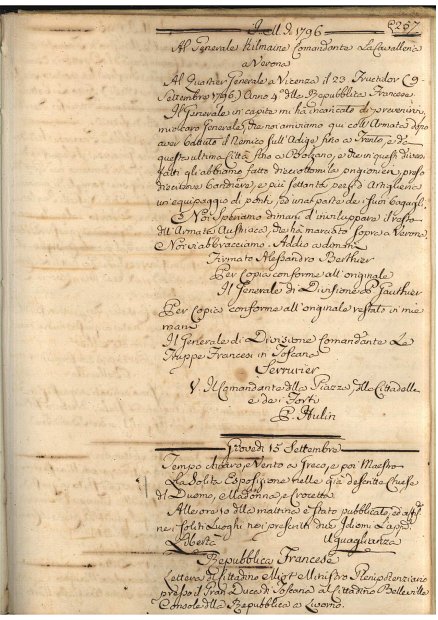 Dell. de 1796 287
Al Generale Kilmaine Comandante La Cavalleria
a Verona
Al Quartier Generale a Vicenza il 23 Fructidor (9
Settembre 1796.) Anno 4° della Repubblica Francese
Il Generale in capite mi ha incaricato di prevenirvi,
mio caro Generale, che noi arriviamo qui coll'Armata dopo
aver battuto il Nemico sull'Adige fino a Trento, e da
questa ultima Città fino a Bolzano, e che in questi diversi
fatti gli abbiamo fatto diciottomila prigionieri, preso
diecinove bandiere, e più settanta pezzi d'Artiglieria
un'equipaggio di ponti, ed una parte de' suoi bagagli.
Noi Speriamo dimani d'inviluppare il resto
dell'Armata Austriaca, che ha marciato sopra Verona
Noi vi abbracciamo. Addio a domani
Firmato Alessandro Berthier
Per Copia conforme all'originale
Il Generale di Divisione P. Gauthier
Per Copia conforme all'originale restato in mie
mani
Il Generale di Divisione Comandante Le
Truppe Francesi in Toscana
Serrurier
V. Il Comandante della Piazza, della Cittadella
e de' Forti
P. Hulin
Giovedì 15 Settembre
Tempo chiaro, e Vento a Greco, e poi Maestro
La Solita Esposizione nelle già descritte Chiese
del Duomo, Madonna, e Crocetta
Alle ore 10 della mattina è Stato pubblicato, ed affisso
nei soliti Luoghi nei presenti due Idiomi
Libertà Uguaglienza
Repubblica Francese
Lettera del Cittadino Miot Ministro Plenipotenziario
presso il Gran Duca di Toscana al Cittadino Belleville
Console della Repubblica a Livorno.